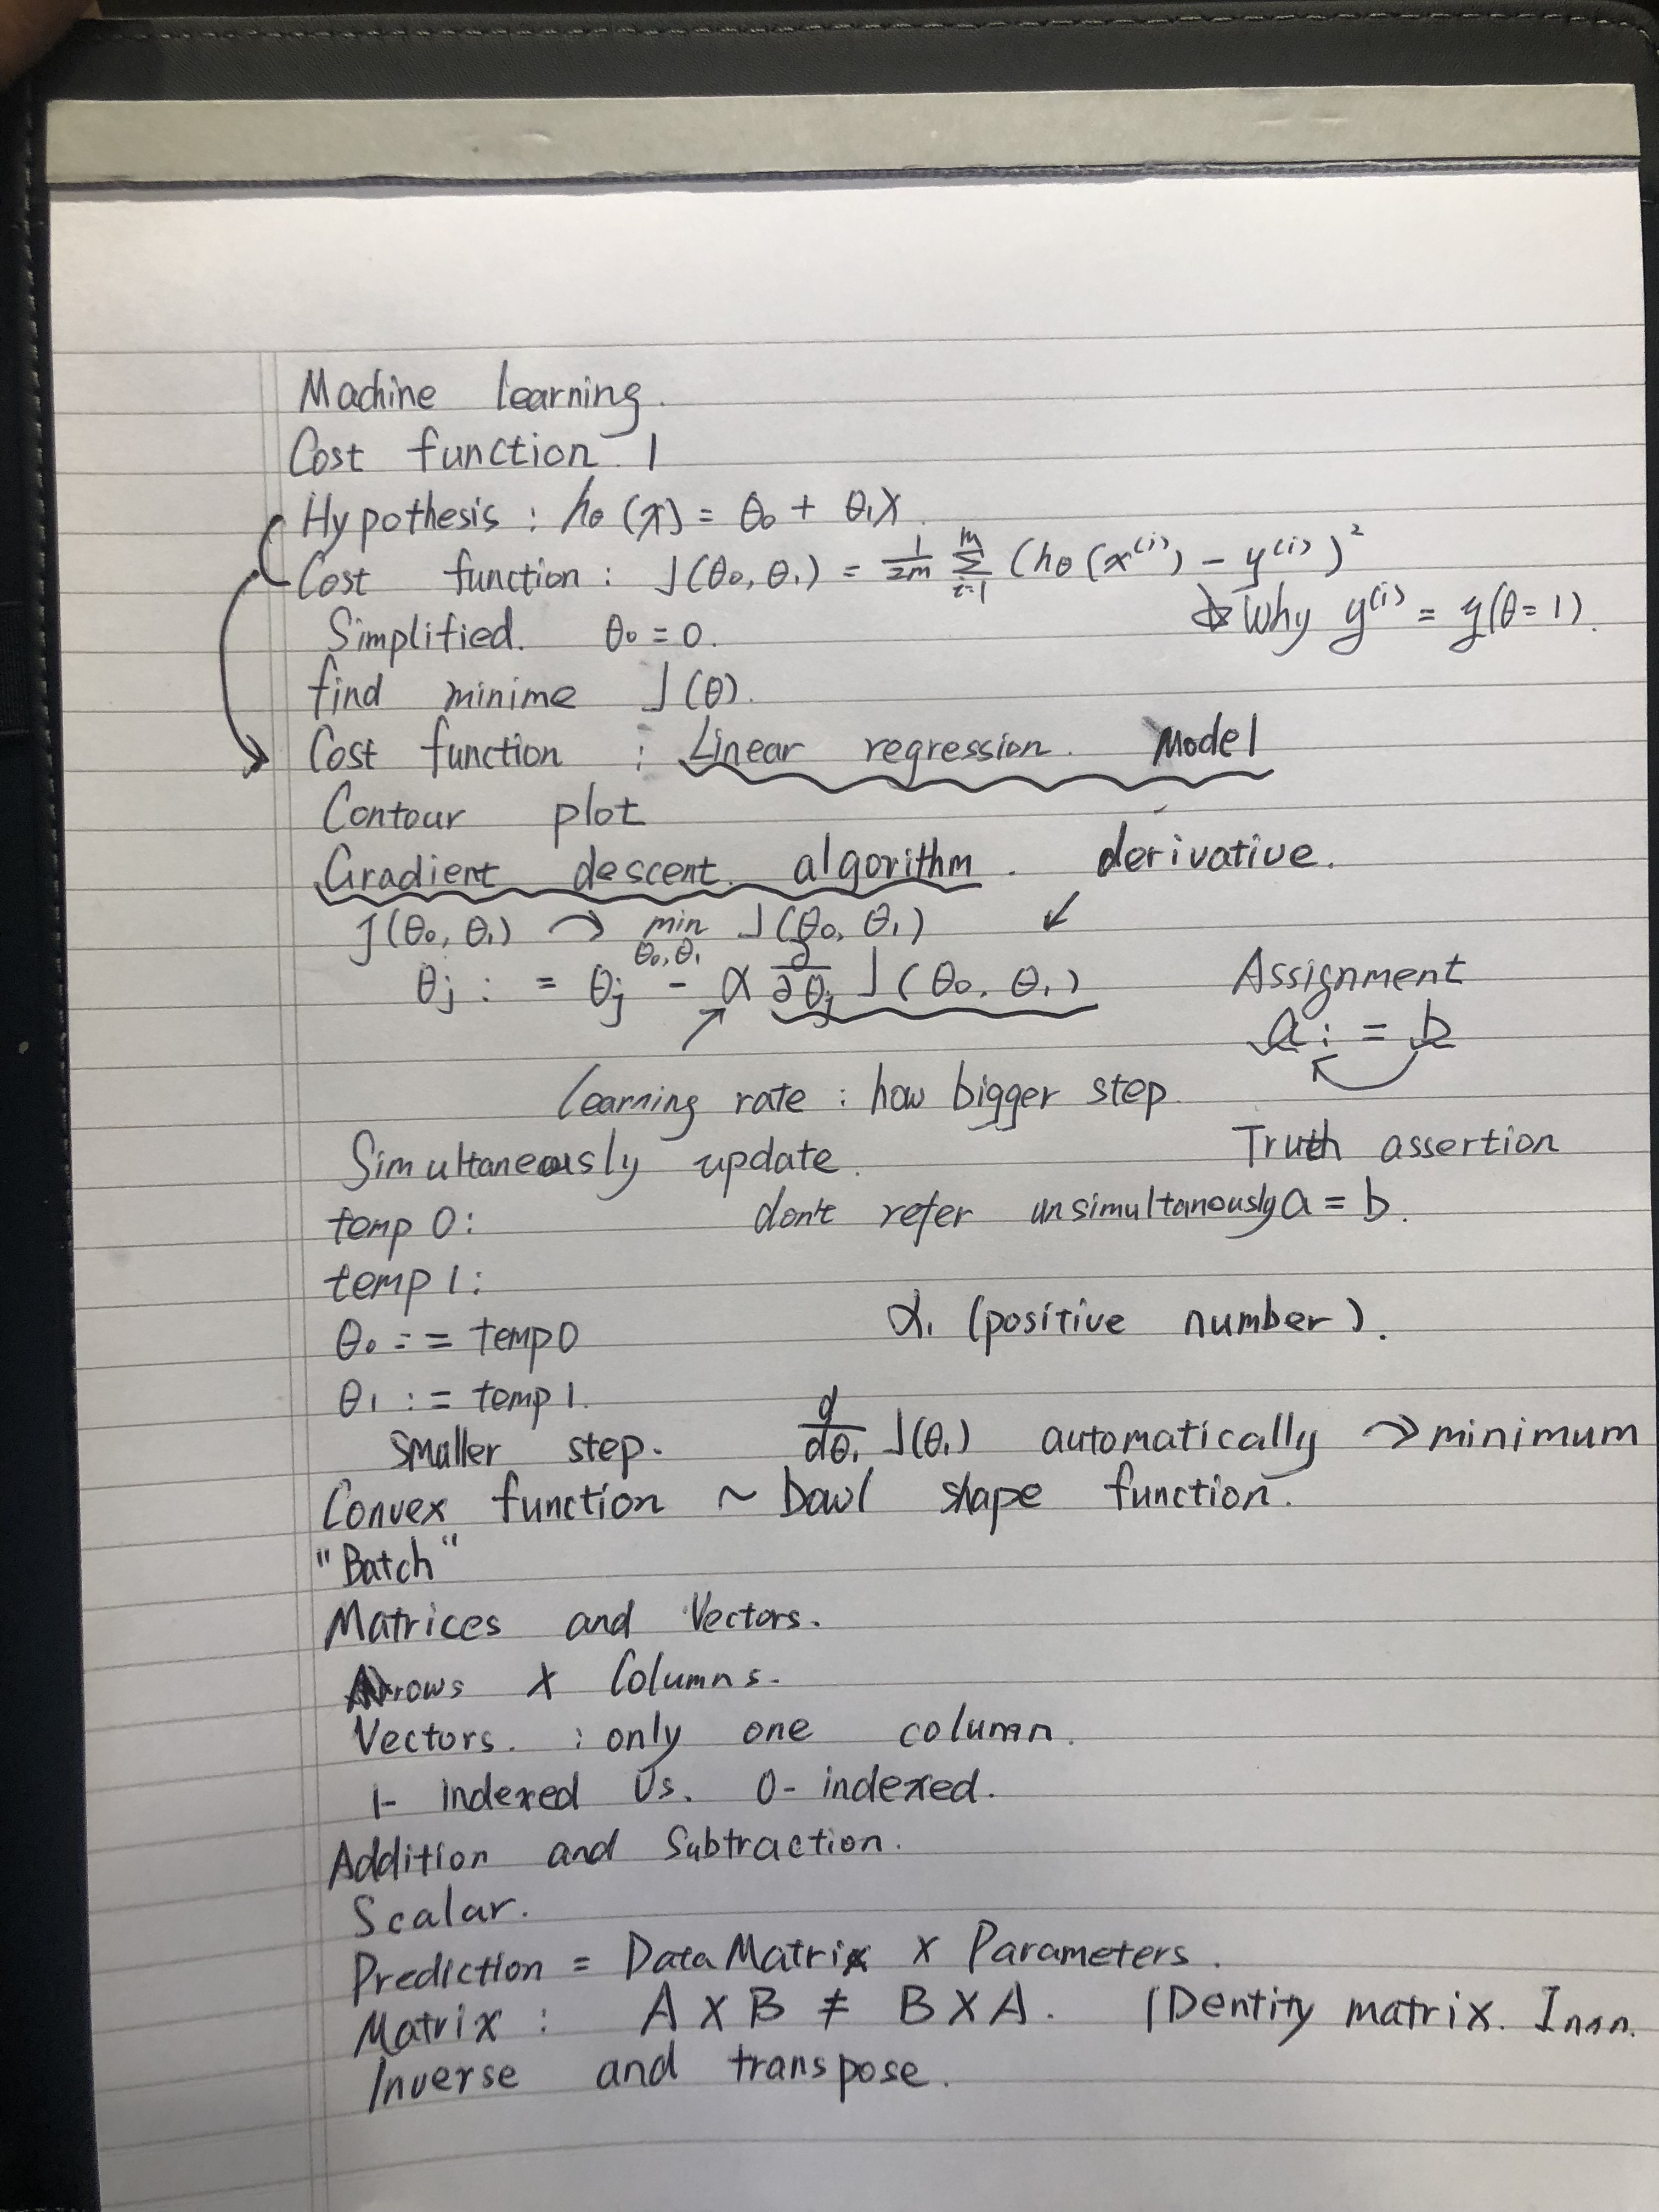 Machine learning.
Cost function 1
Hypothesis : hθ (x) = θ₀ + θ₁X.
Cost function : J(θ₀, θ₁) = 1/2m Σᵢ₌₁ᵐ (hθ (x⁽ⁱ⁾) - y⁽ⁱ⁾)²
Why y⁽ⁱ⁾ = y(θ=1).
Simplified. θ₀ = 0.
find minime J(θ).
Cost function : Linear regression. Model
Contour plot
Gradient descent algorithm. derivative.
J(θ₀, θ₁) → min θ₀,θ₁ J(θ₀, θ₁)
θj := θj - α ∂/∂θj J(θ₀, θ₁)
Assignment
a := b
learning rate : how bigger step
Truth assertion
Simultaneously update.
don't refer unsimultanously a = b.
temp 0:
temp 1:
α. (positive number).
θ₀ := temp0
θ₁ := temp1.
smaller step. d/dθ₁ J(θ₁) automatically → minimum
Convex function ~ bowl shape function.
"Batch"
Matrices and Vectors.
rows X Columns.
Vectors. : only one column.
1- indexed Vs. 0- indexed.
Addition and Subtraction.
Scalar.
Prediction = DataMatrix X Parameters.
Matrix : A X B ≠ B X A. IDentity matrix. Inxn.
Inverse and transpose.